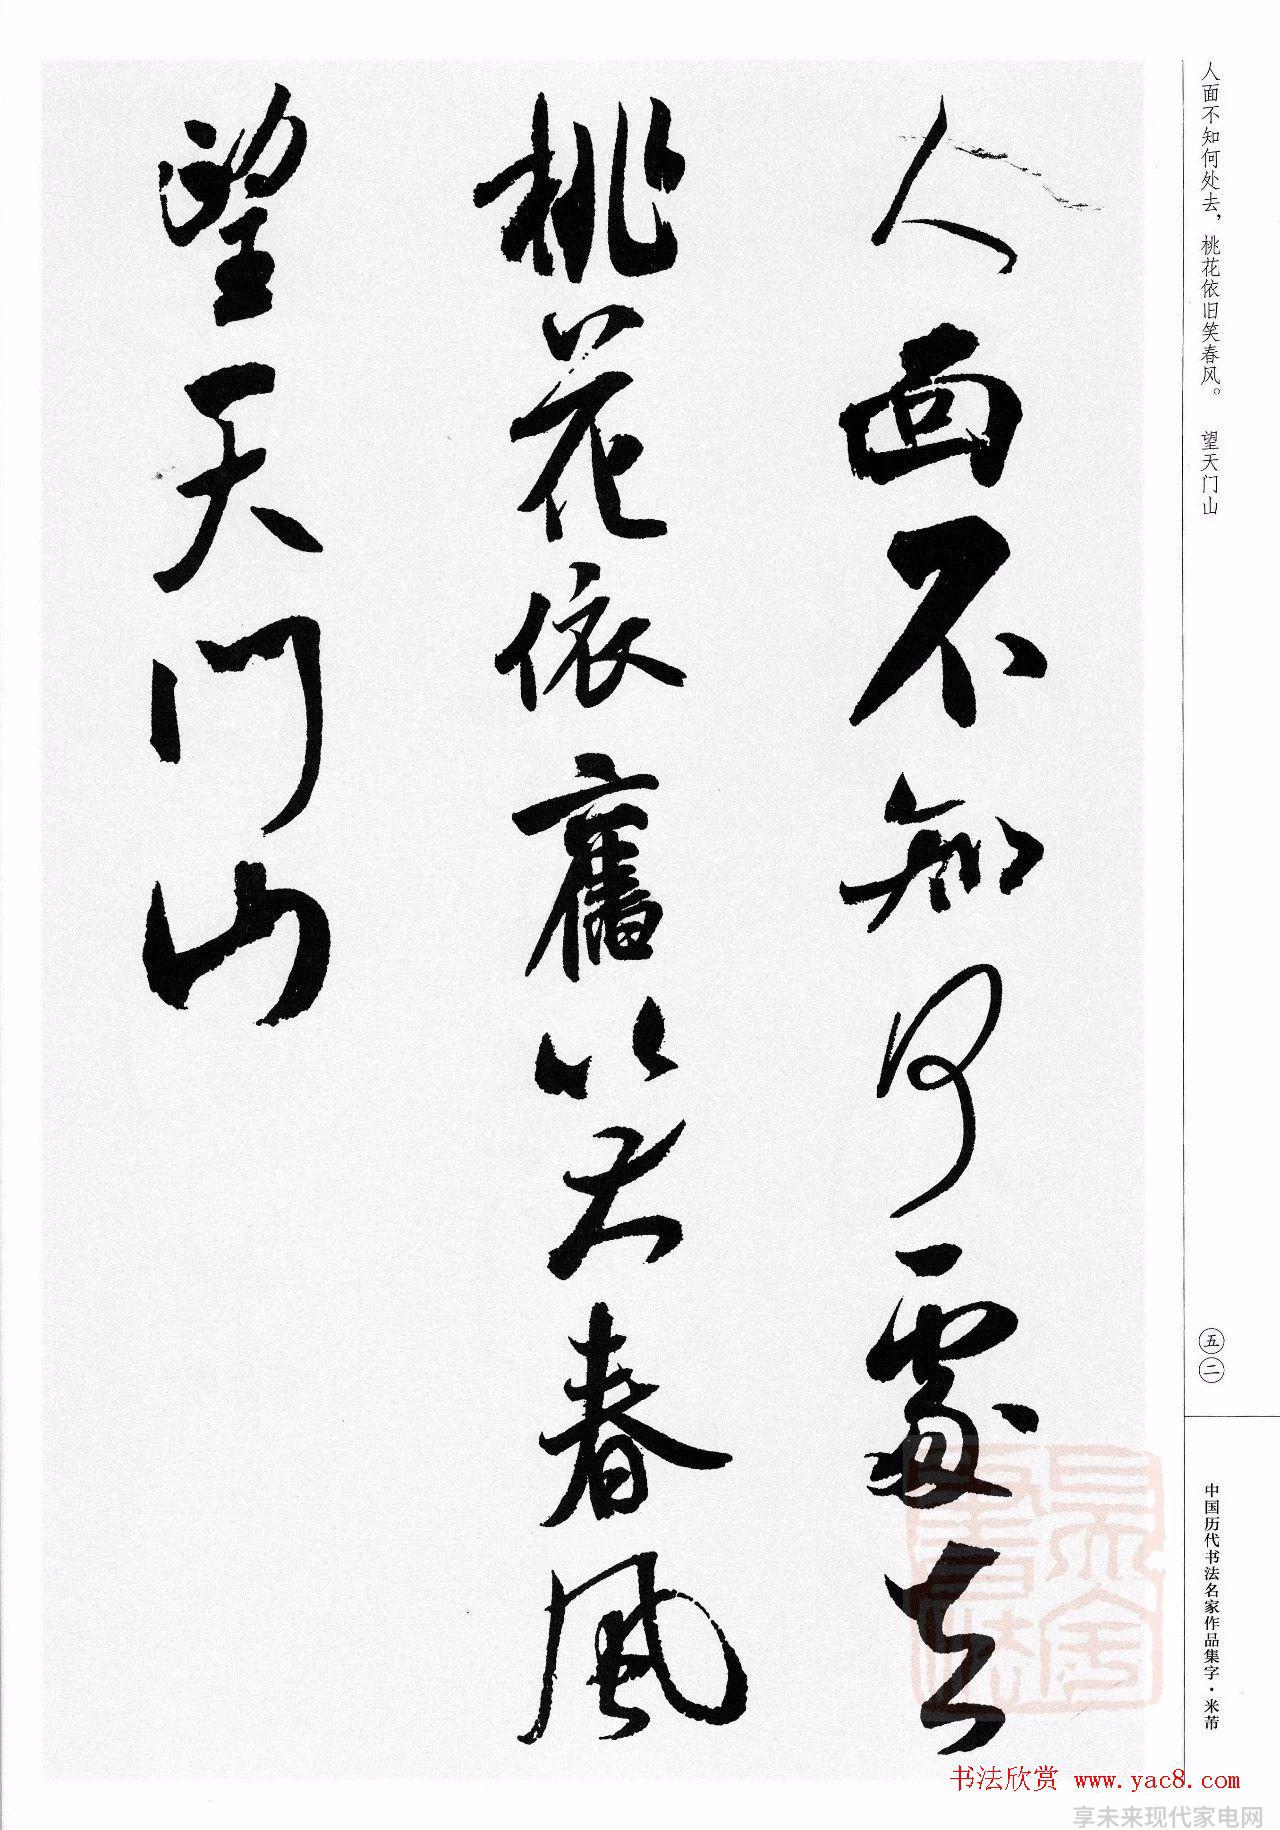 人面不知何處去
桃花依舊笑春風
望天門山
人面不知何处去，桃花依旧笑春风。 望天门山
五二
中国历代书法名家作品集字·米芾
书法欣赏 www.yac8.com
享未来现代家电网